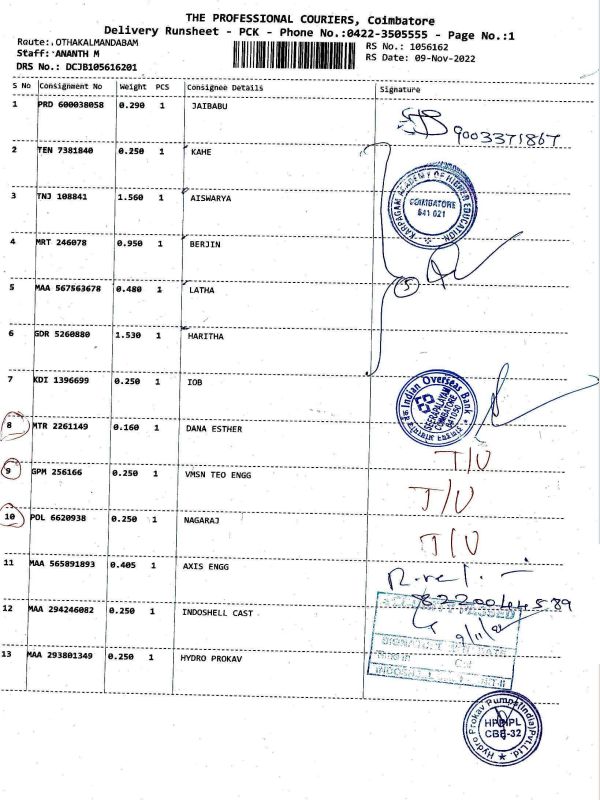 THE PROFESSIONAL COURIERS, Coimbatore
Delivery Runsheet - PCK - Phone No.:0422-3505555 - Page No.:1
Route:. OTHAKALMANDABAM
Staff: ANANTH M
DRS No.: DCJB105616201
RS No.: 1056162
RS Date: 09-Nov-2022
S No Consignment No Weight PCS Consignee Details Signature
1 PRD 600038058 0.290 1 JAIBABU
9003371867
2 TEN 7381840 0.250 1 KAHE
3 TNJ 108841 1.560 1 AISWARYA
KARPAGAM ACADEMY OF HIGHER EDUCATION
COIMBATORE
641 021
4 MRT 246078 0.950 1 BERJIN
5 MAA 567563678 0.480 1 LATHA
5
6 GDR 5260880 1.530 1 HARITHA
7 KDI 1396699 0.250 1 IOB
Indian Overseas Bank
COIMBATORE
8 MTR 2261149 0.160 1 DANA ESTHER
T/U
9 GPM 256166 0.250 1 VMSN TEO ENGG
T/U
10 POL 6620938 0.250 1 NAGARAJ
T/U
11 MAA 565891893 0.405 1 AXIS ENGG
12 MAA 294246082 0.250 1 INDOSHELL CAST
SECURITY PASSED
13 MAA 293801349 0.250 1 HYDRO PROKAV
Hydro Prokav Pumps(India)Pvt.Ltd.
HPPIPL
CBE-32